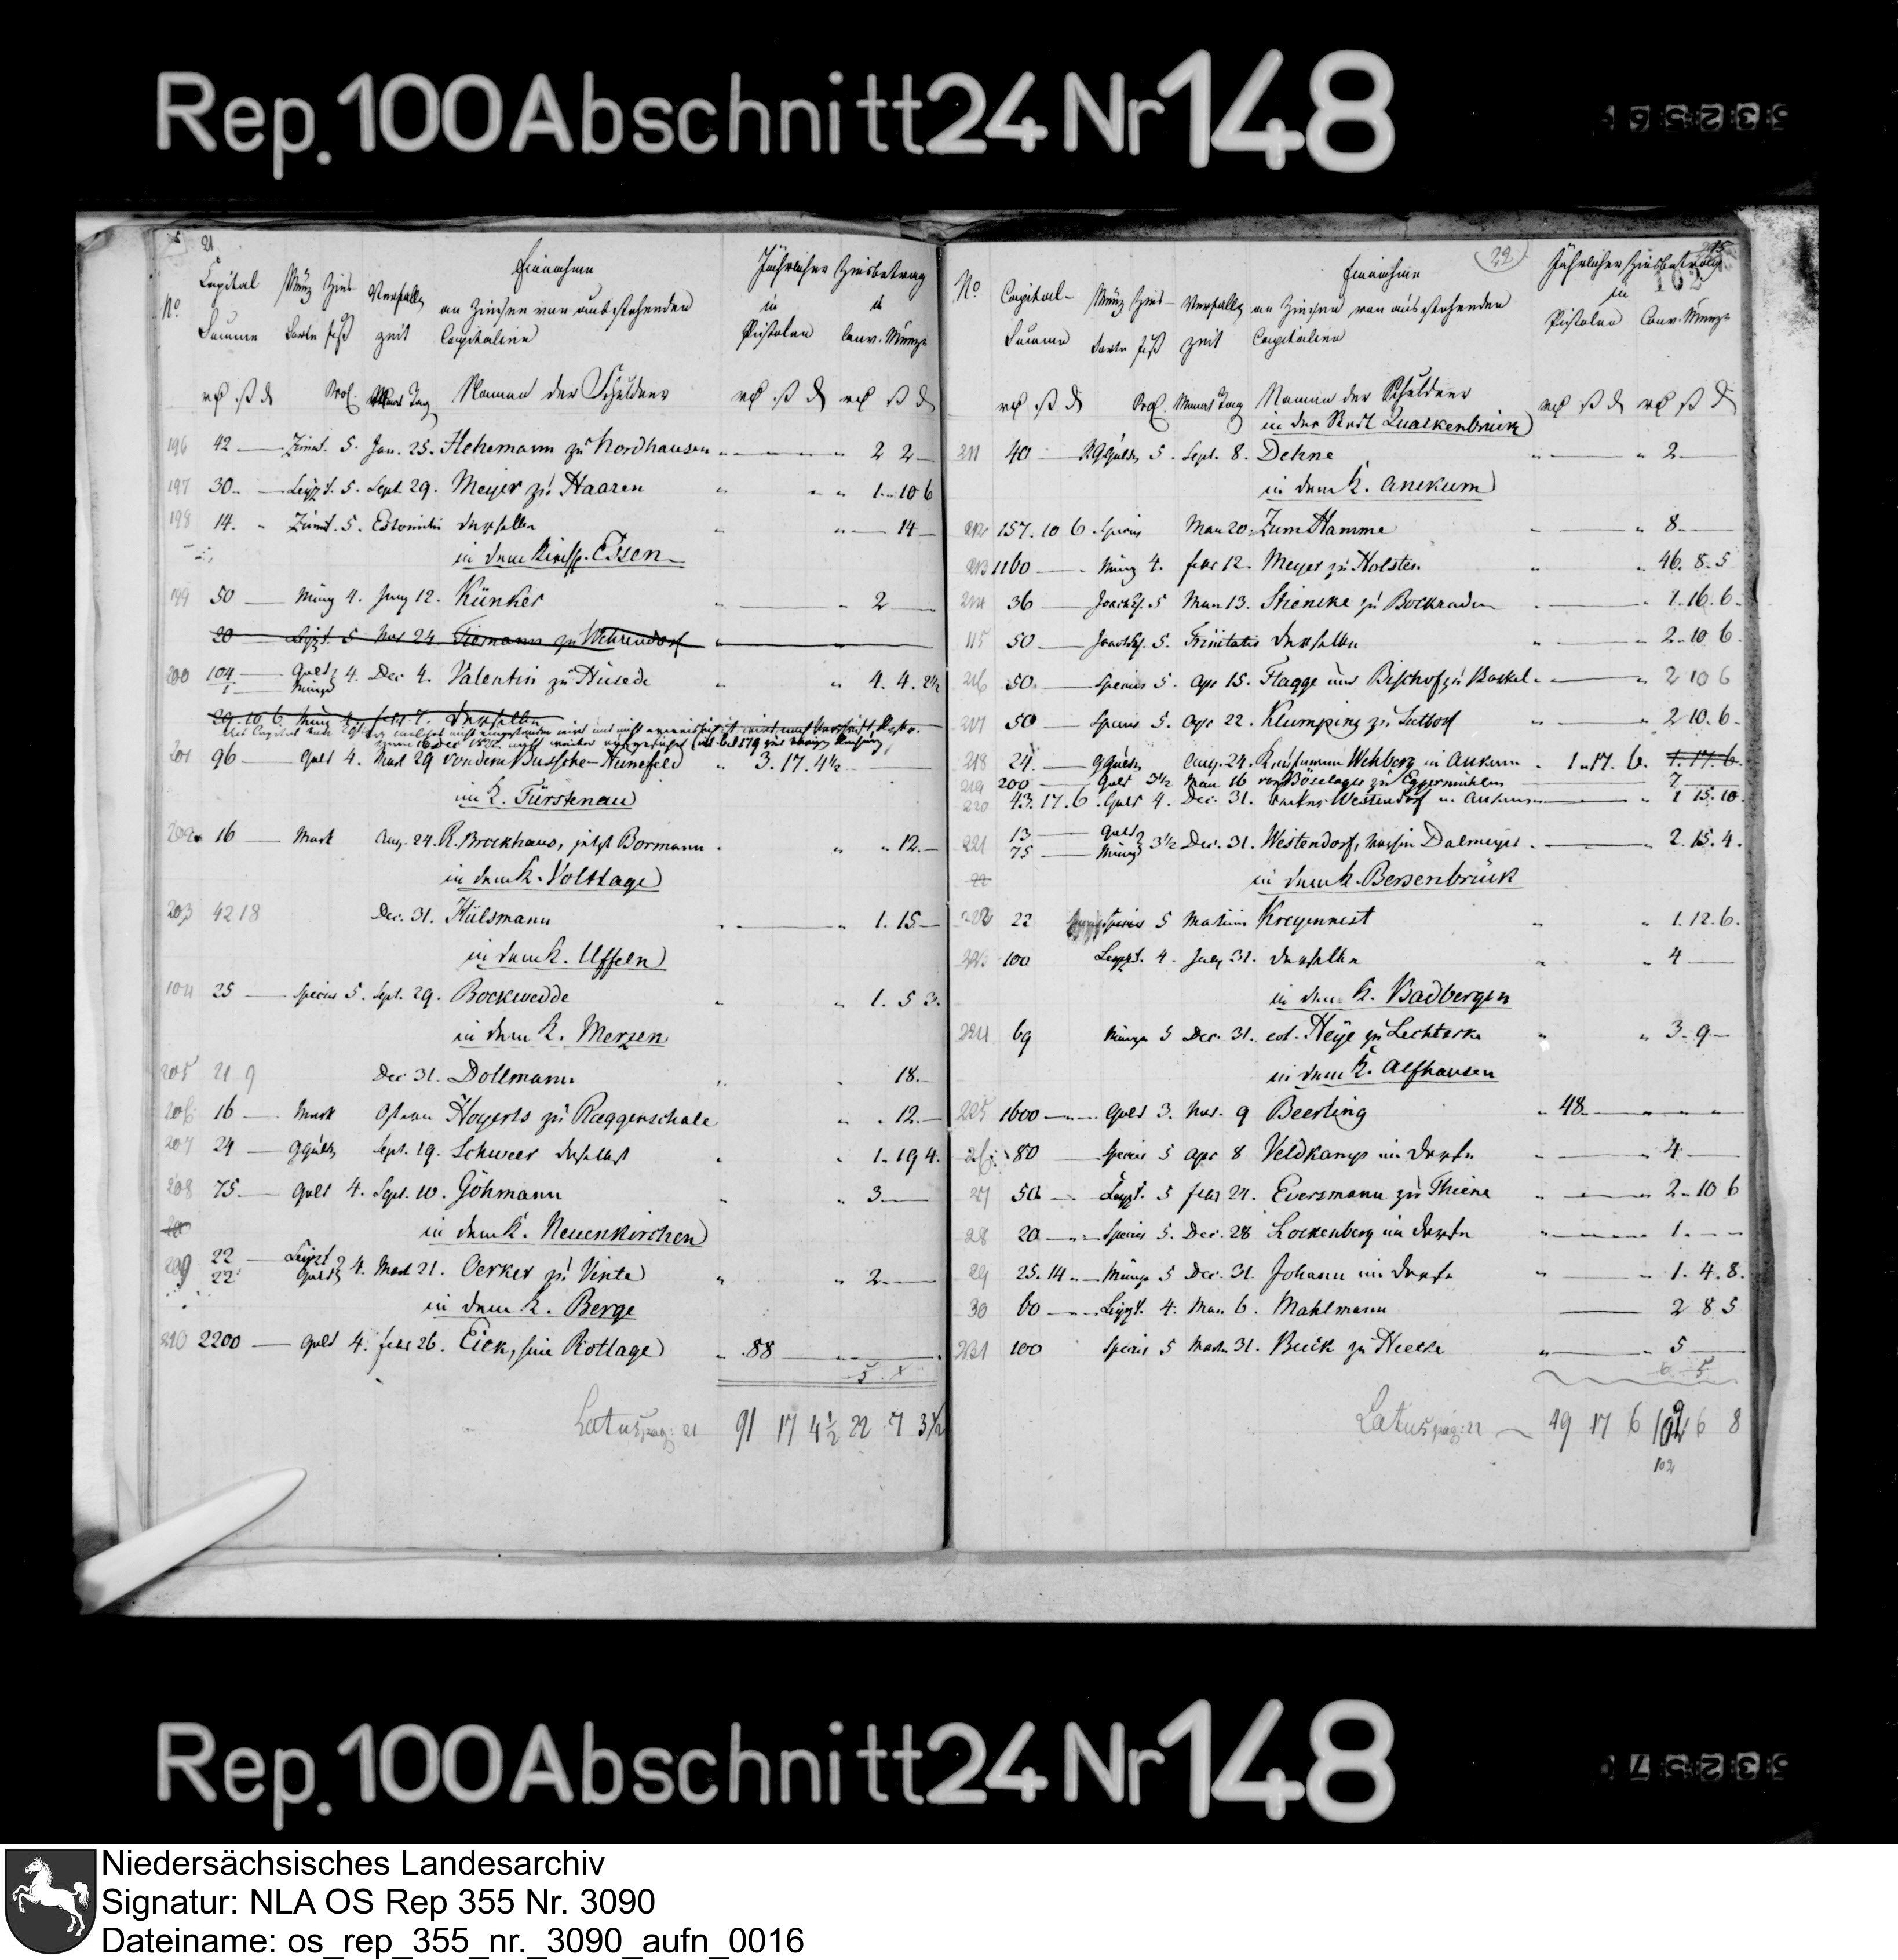 Rep. 100 Abschnitt 24 Nr 148
21
No Capital Summe Münz Sorte Zins fuß Verfall zeit Einnahme an Zinsen von ausstehenden Capitalien Jährlicher Zinsbetrag in Pistolen in Conv. Münze
Proc. Monat Tag Namen der Schuldner
196 42 — 5. Jan. 25. Hehemann zu Nordhausen „ — „ 2 2 —
197 30. — Leyzt. 5. Sept 29. Meyer zu Haaren „ „ „ 1 „ 10 6
198 14. „ 5. Estomihi derselbe „ „ — 14 —
in dem Kirchsp. Essen
199 50 — Münz 4. Juny 12. Künker „ — „ 2 —
20 — Leyzt. 5 Nov 24 Tiemann zu Wehrendorf
200 104 — Gold 4. Dec 4. Valentin zu Hüsede „ „ 4. 4. 2½
1 — Münze
29. 10. 6 Münz 4. Febr 7. derselbe
201 96 — Gold 4. Mart 29 von dem Bussche-Hünefeld „ 3. 17. 4½
im K. Fürstenau
202 16 — Mark Aug. 24. R. Brockhaus, jetzt Bormann „ „ „ 12. —
in dem K. Voltlage
203 42 18 Dec. 31. Hülsmann „ — „ 1. 15 —
in dem K. Uffeln
104 25 — Specius 5. Sept. 29. Bockwedde „ „ 1. 5 3.
in dem K. Merzen
205 21 9 Dec 31. Dollmann „ „ 18. —
206 16 — Mark Ostern Hoyerts zu Raggenschale „ „ 12. —
207 24 — Ggulds Sept. 19. Schweer daselbst „ „ 1. 19 4.
208 75 — Gold 4. Sept. 10. Göhmann „ „ 3. —
in dem K. Neuenkirchen
209 22 — Leyzt 4. Mart 21. Oerker zu Vinte „ „ 2. —
22 Gold
in dem K. Berge
210 2200 — Gold 4. Febr 26. Eick, sive Rotlage „ 88 —
Latus pag: 21 91 17 4½ 22 7 3½
22
162
No Capital- Summe Münz Sorte Zins- fuß Verfall zeit Einnahme an Zinsen von ausstehenden Capitalien Jährlicher Zinsbetrag in Pistolen Conv. Münze
Proc. Monat Tag Namen der Schuldner
in der Stadt Quakenbrück
211 40 — 5. Sept. 8. Dehne „ — „ 2. —
in dem K. Anckum
212 157. 10 6. Specius May 20. Zum Hamme „ — „ 8 —
213 1160 — Münz 4. Febr 12. Meyer zu Holsten „ „ 46. 8. 5
214 36 — 5 May 13. Stiencke zu Bockraden — „ 1. 16. 6.
115 50 — 5. Trinitatis derselbe „ — „ 2 „ 10 6.
216 50. — Specius 5. Apr 15. Flagge und Bischof zu Bockel „ — „ 2 10 6
217 50 — Specius 5. Apr 22. Klumping zu Suttorf „ — „ 2 10. 6 —
218 24. — Ggulds Aug. 24. Kaufmann Wehberg in Ankum „ 1 „ 17. 6. 1. 17. 6.
219 200 — Gold 3½ May 16 von Böselager zu Eggermühlen 7 —
220 43. 17. 6. Gold 4. Dec. 31. Westendorf in Ankum — „ 1 15. 10.
221 13 — Gold 3½ Dec. 31. Westendorf, Dalmeyer „ — „ 2. 15. 4.
75 — Münz
in dem K. Bersenbrück
222 22 Specius 5 Kreyennest „ „ 1. 12. 6.
223 100 Leyzt. 4. July 31. derselbe „ „ 4 —
in dem K. Badbergen
224 69 Münze 5 Dec. 31. col. Heye zu Lechterke „ „ 3. 9 —
in dem K. Alfhausen
225 1600 — Gold 3. Nov. 9 Beerling „ 48. —
26 80 — Specius 5 Apr 8 Veldkamp im Dorfe „ — „ 4 —
27 50. — Leyzt. 5 Febr 24. Eversmann zu Thiene „ — „ 2 „ 10 6
28 20 — Specius 5. Dec. 28 Lockenberg im Dorfe „ — „ 1. —
29 25. 14 „ — Münze 5 Dec. 31. Johann im Dorfe „ — „ 1. 4. 8.
30 60 — Leyzt. 4. May 6. Mahlmann — 2 8 5
231 100 Specius 5 31. Bueck zu Heecke „ — „ 5 —
Latus pag: 22 49 17 6 102 6 8
102
Rep. 100 Abschnitt 24 Nr 148
Niedersächsisches Landesarchiv
Signatur: NLA OS Rep 355 Nr. 3090
Dateiname: os_rep_355_nr._3090_aufn_0016